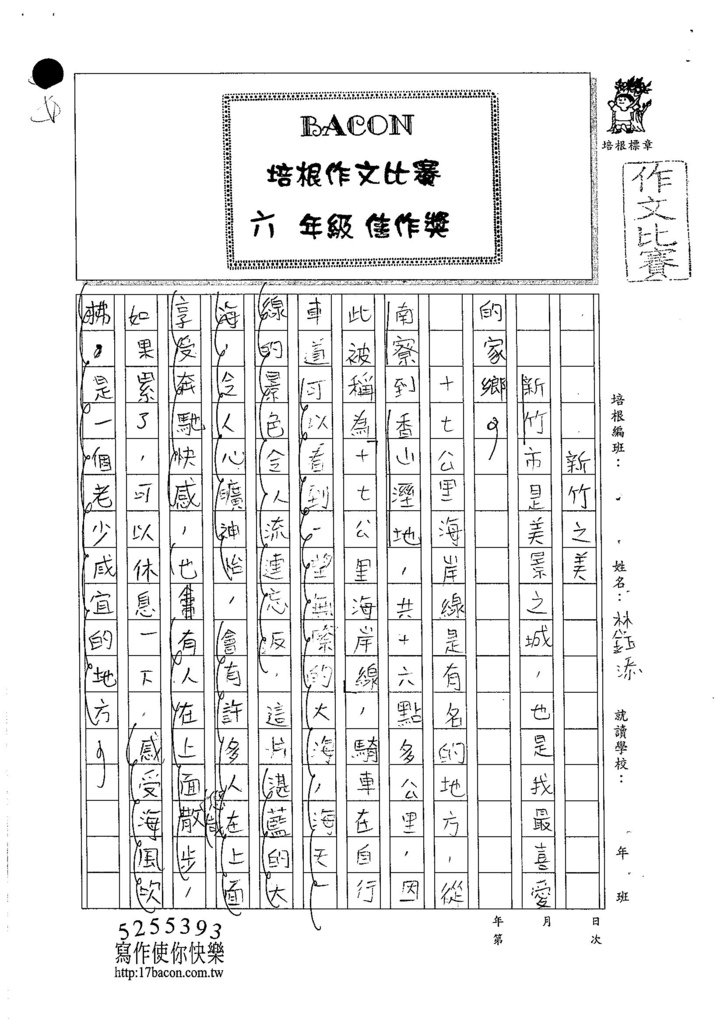 BACON
培根作文比賽
六 年級 佳作獎
培根標章
作文比賽
培根編班：
姓名：林鈺添
就讀學校：
年 班
日
次
月
年
第
新竹之美
新竹市是美景之城，也是我最喜愛
的家鄉。
十七公里海岸線是有名的地方，從
南寮到香山溼地，共十六點多公里，因
此被稱為「十七公里海岸線」，騎車在自行
車道可以看到一望無際的大海，海天一
線的景色令人流連忘返，這片湛藍的大
海，令人心曠神怡，會有許多人在上面
享受奔馳快感，也會有人在上面散步，
悠哉
如果累了，可以休息一下，感受海風吹
拂，是一個老少咸宜的地方。
5255393
寫作使你快樂
http:17bacon.com.tw